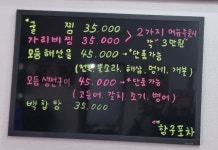 *굴 찜 35.000
가리비찜 35.000 > 2가지 여유주문시 각 "3만원"
모듬해산물 45.000 → *단품가능
(전복, 뿔소라, 해삼, 멍게, 개불)
모듬생선구이 45.000 → *단품가능
(고등어, 갈치, 조기, 열어)
백합탕 38.000
*항구포차